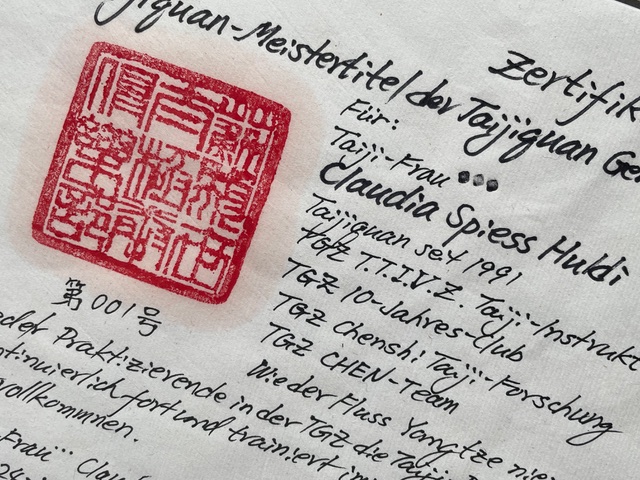 Zertifik
jiquan-Meistertitel der Taijiquan Ge
Für:
Taiji-Frau
Claudia Spiess Huldi
Taijiquan seit 1991
TGZ T.T.I.V.Z. Taiji-Instrukt
TGZ 10-Jahres-Club
TGZ Chenshi Taiji-Forschung
TGZ CHEN-Team
第001号
Wie der Fluss Yangtze nie
der Praktizierende in der TGZ die Taiji
ntinuierlich fort und trainiert
vollkommen.
Frau... Claud